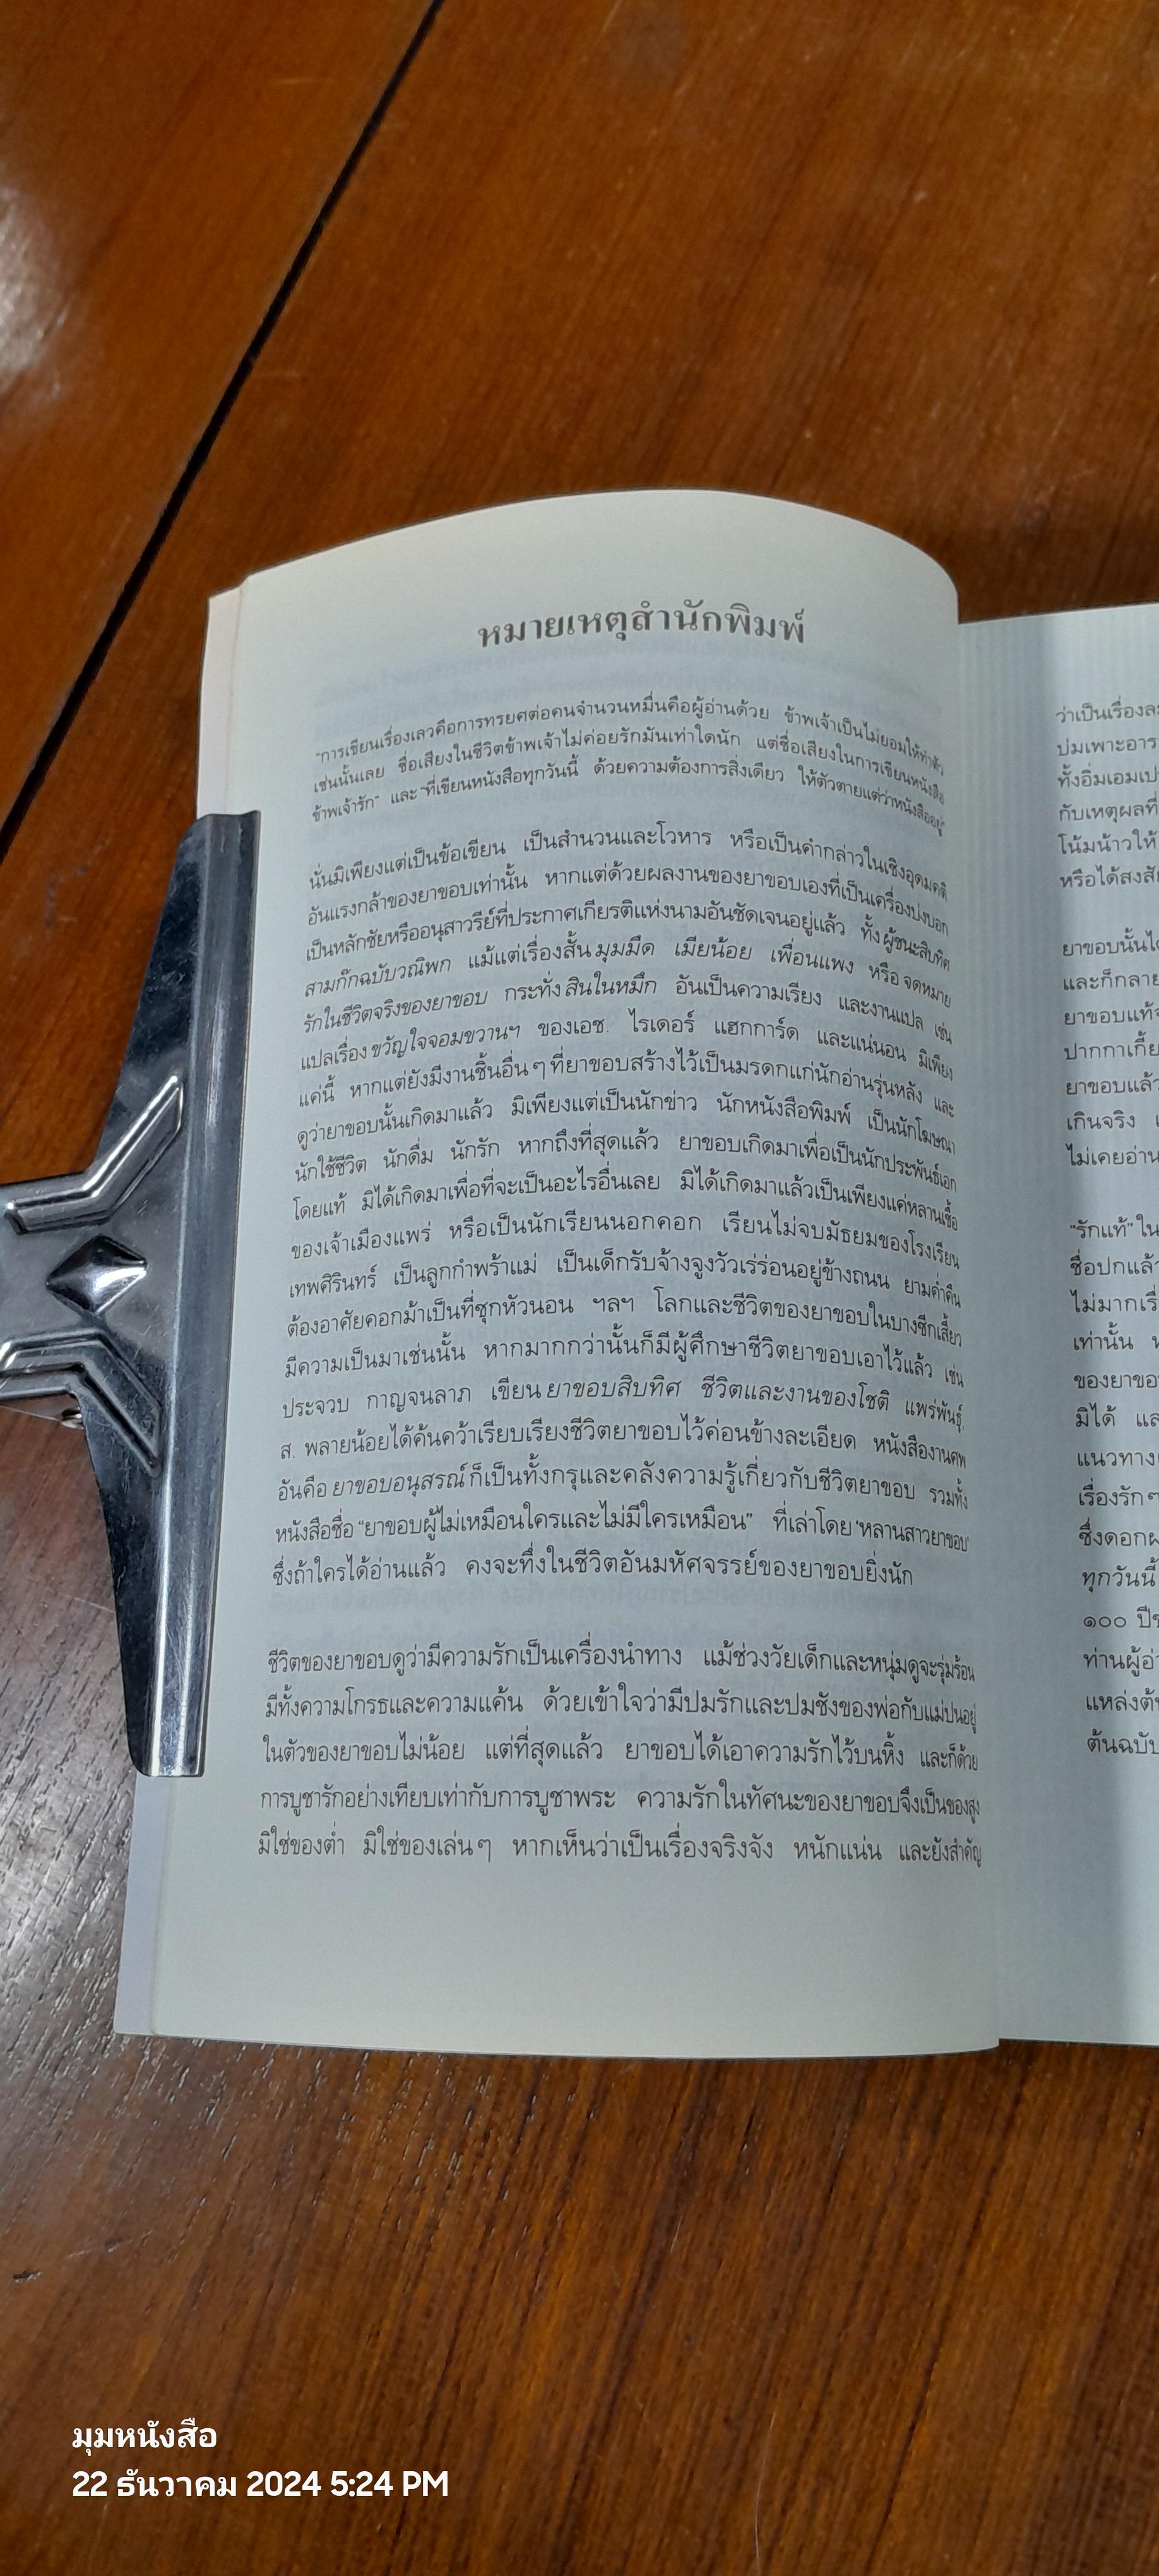 หมายเหตุสำนักพิมพ์
"การเขียนเรื่องเลวคือการทรยศต่อคนจำนวนหมื่นคือผู้อ่านด้วย ข้าพเจ้าเป็นไม่ยอมให้ทำตัว
เช่นนั้นเลย ชื่อเสียงในชีวิตข้าพเจ้าไม่ค่อยรักมันเท่าใดนัก แต่ชื่อเสียงในการเขียนหนังสือ
ข้าพเจ้ารัก" และ "ที่เขียนหนังสือทุกวันนี้ ด้วยความต้องการสิ่งเดียว ให้ตัวตายแต่ว่าหนังสืออยู่"
นั่นมิเพียงแต่เป็นข้อเขียน เป็นสำนวนและโวหาร หรือเป็นคำกล่าวในเชิงอุดมคติ
อันแรงกล้าของยาขอบเท่านั้น หากแต่ด้วยผลงานของยาขอบเองที่เป็นเครื่องบ่งบอก
เป็นหลักชัยหรืออนุสาวรีย์ที่ประกาศเกียรติแห่งนามอันชัดเจนอยู่แล้ว ทั้ง ผู้ชนะสิบทิศ
สามก๊กฉบับวณิพก แม้แต่เรื่องสั้น มุมมืด เมียน้อย เพื่อนแพง หรือ จดหมาย
รักในชีวิตจริงของยาขอบ กระทั่ง สินในหมึก อันเป็นความเรียง และงานแปล เช่น
แปลเรื่อง ขวัญใจจอมขวานฯ ของเอช. ไรเดอร์ แฮกการ์ด และแน่นอน มิเพียง
แค่นี้ หากแต่ยังมีงานชิ้นอื่นๆ ที่ยาขอบสร้างไว้เป็นมรดกแก่นักอ่านรุ่นหลัง และ
ดูว่ายาขอบนั้นเกิดมาแล้ว มิเพียงแต่เป็นนักข่าว นักหนังสือพิมพ์ เป็นนักโฆษณา
นักใช้ชีวิต นักดื่ม นักรัก หากถึงที่สุดแล้ว ยาขอบเกิดมาเพื่อเป็นนักประพันธ์เอก
โดยแท้ มิได้เกิดมาเพื่อที่จะเป็นอะไรอื่นเลย มิได้เกิดมาแล้วเป็นเพียงแค่หลานเชื้อ
ของเจ้าเมืองแพร่ หรือเป็นนักเรียนนอกคอก เรียนไม่จบมัธยมของโรงเรียน
เทพศิรินทร์ เป็นลูกกำพร้าแม่ เป็นเด็กรับจ้างจูงวัวเร่ร่อนอยู่ข้างถนน ยามค่ำคืน
ต้องอาศัยคอกม้าเป็นที่ซุกหัวนอน ฯลฯ โลกและชีวิตของยาขอบในบางซีกเสี้ยว
มีความเป็นมาเช่นนั้น หากมากกว่านั้นก็มีผู้ศึกษาชีวิตยาขอบเอาไว้แล้ว เช่น
ประจวบ กาญจนลาภ เขียน ยาขอบสิบทิศ ชีวิตและงานของโชติ แพร่พันธุ์,
ส. พลายน้อยได้ค้นคว้าเรียบเรียงชีวิตยาขอบไว้ค่อนข้างละเอียด หนังสืองานศพ
อันคือ ยาขอบอนุสรณ์ ก็เป็นทั้งกรุและคลังความรู้เกี่ยวกับชีวิตยาขอบ รวมทั้ง
หนังสือชื่อ "ยาขอบผู้ไม่เหมือนใครและไม่มีใครเหมือน" ที่เล่าโดย 'หลานสาวยาขอบ'
ซึ่งถ้าใครได้อ่านแล้ว คงจะทึ่งในชีวิตอันมหัศจรรย์ของยาขอบยิ่งนัก
ชีวิตของยาขอบดูว่ามีความรักเป็นเครื่องนำทาง แม้ช่วงวัยเด็กและหนุ่มดูจะรุ่มร้อน
มีทั้งความโกรธและความแค้น ด้วยเข้าใจว่ามีปมรักและปมชังของพ่อกับแม่ปนอยู่
ในตัวของยาขอบไม่น้อย แต่ที่สุดแล้ว ยาขอบได้เอาความรักไว้บนหิ้ง และก็ด้วย
การบูชารักอย่างเทียบเท่ากับการบูชาพระ ความรักในทัศนะของยาขอบจึงเป็นของสูง
มิใช่ของต่ำ มิใช่ของเล่นๆ หากเห็นว่าเป็นเรื่องจริงจัง หนักแน่น และยังสำคัญ
ว่าเป็นเรื่อง
ปมเพาะอาร
ทั้งอิ่มเอม
กับเหตุผลที่
โน้มน้าวให้
หรือได้
ยาขอบนั้น
และก็กลาย
ยาขอบแท้
ปากกา
ยาขอบแล้ว
เกินจริง
ไม่เคยอ่าน
"รักแท้" ใน
ชื่อปกแล้ว
ไม่มาก
เท่านั้น
ของยาขอ
มิได้
แนวทาง
เรื่องรักๆ
ซึ่งดอก
ทุกวันนี้
๑๐๐ ปี
ท่านผู้อ่า
แหล่งต้น
ต้นฉบับ
มุมหนังสือ
22 ธันวาคม 2024 5:24 PM